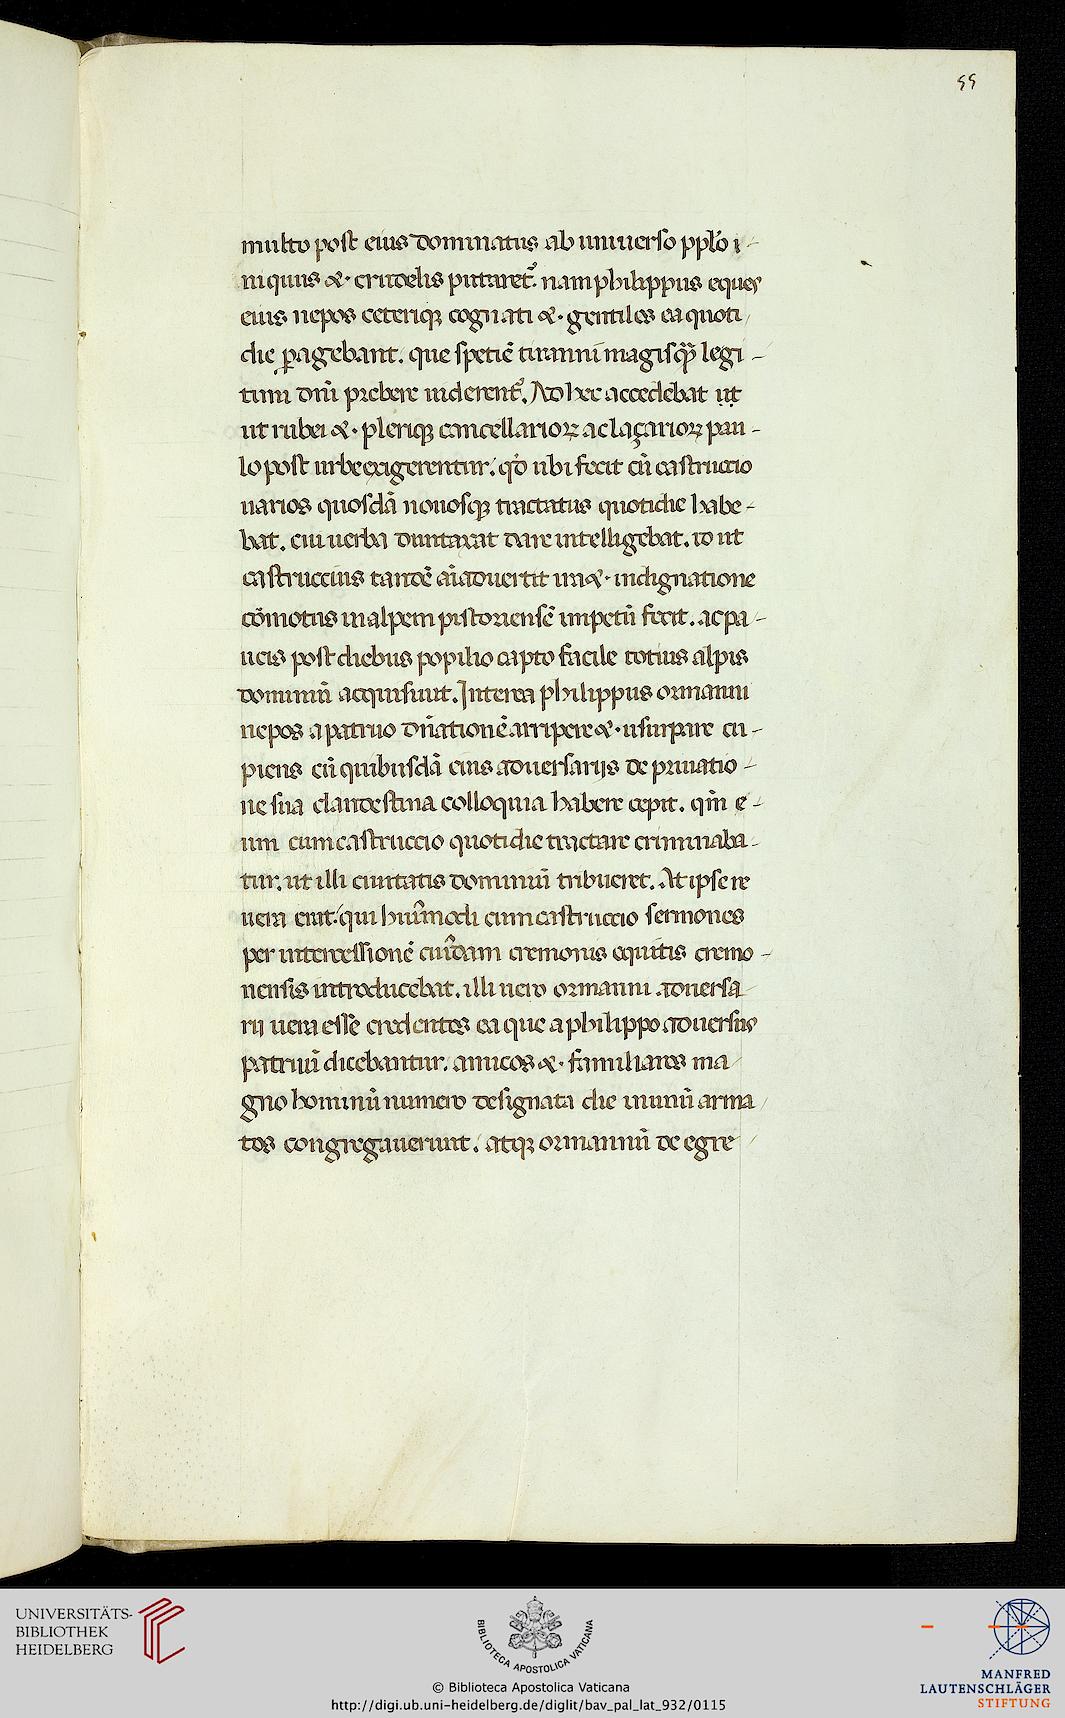 55
multo post eius dominatus ab uniuerso pplo i-
niquus &· crudelis putaret᷒. nam philippus eques
eius nepos ceteriqꝫ cognati &· gentiles ea quoti/
die ꝑagebant. que spetiē tiranni magisqꝫ legi-
timi dnī prebere uiderent᷒. Ad hec accedebat ut
ut rubei &· pleriqꝫ cancellarioꝝ ac laçarioꝝ pau-
lo post urbe exigerentur. qđ ubi fecit cū castruccio
uarios quosdā nouosqꝫ tractatus quotidie habe-
bat. cui uerba duntaxat dare intelligebat. id ut
castruccius tandē aīaduertit ira &· indignatione
cōmotus in alpem pistoriensē impetū fecit. ac pa-
ucis post diebus popilio capto facile totius alpis
dominiū acquisiuit. Interea philippus ormanni
nepos a patruo dn̄ationē arripere &· usurpare cu-
piens cū quibusdā eius aduersarijs de priuatio-
ne sua clandestina colloquia habere cepit. qm̄ e-
um cum castruccio quotidie tractare criminaba-
tur. ut illi ciuitatis dominiū tribueret. At ipse re
uera erat. qui huiūmodi cum castruccio sermones
per intercessionē cuiūdam cremonis equitis cremo-
nensis introducebat. illi uero ormanni aduersa
rij uera esse credentes ea que a philippo aduersus
patruū dicebantur. amicos &· familiares ma/
gno hominū numero designata die in unū arma/
tos congregauerunt. atqꝫ ormannū de egre/
UNIVERSITÄTS-
BIBLIOTHEK
HEIDELBERG
BIBLIOTECA APOSTOLICA VATICANA
© Biblioteca Apostolica Vaticana
http://digi.ub.uni-heidelberg.de/diglit/bav_pal_lat_932/0115
MANFRED
LAUTENSCHLÄGER
STIFTUNG